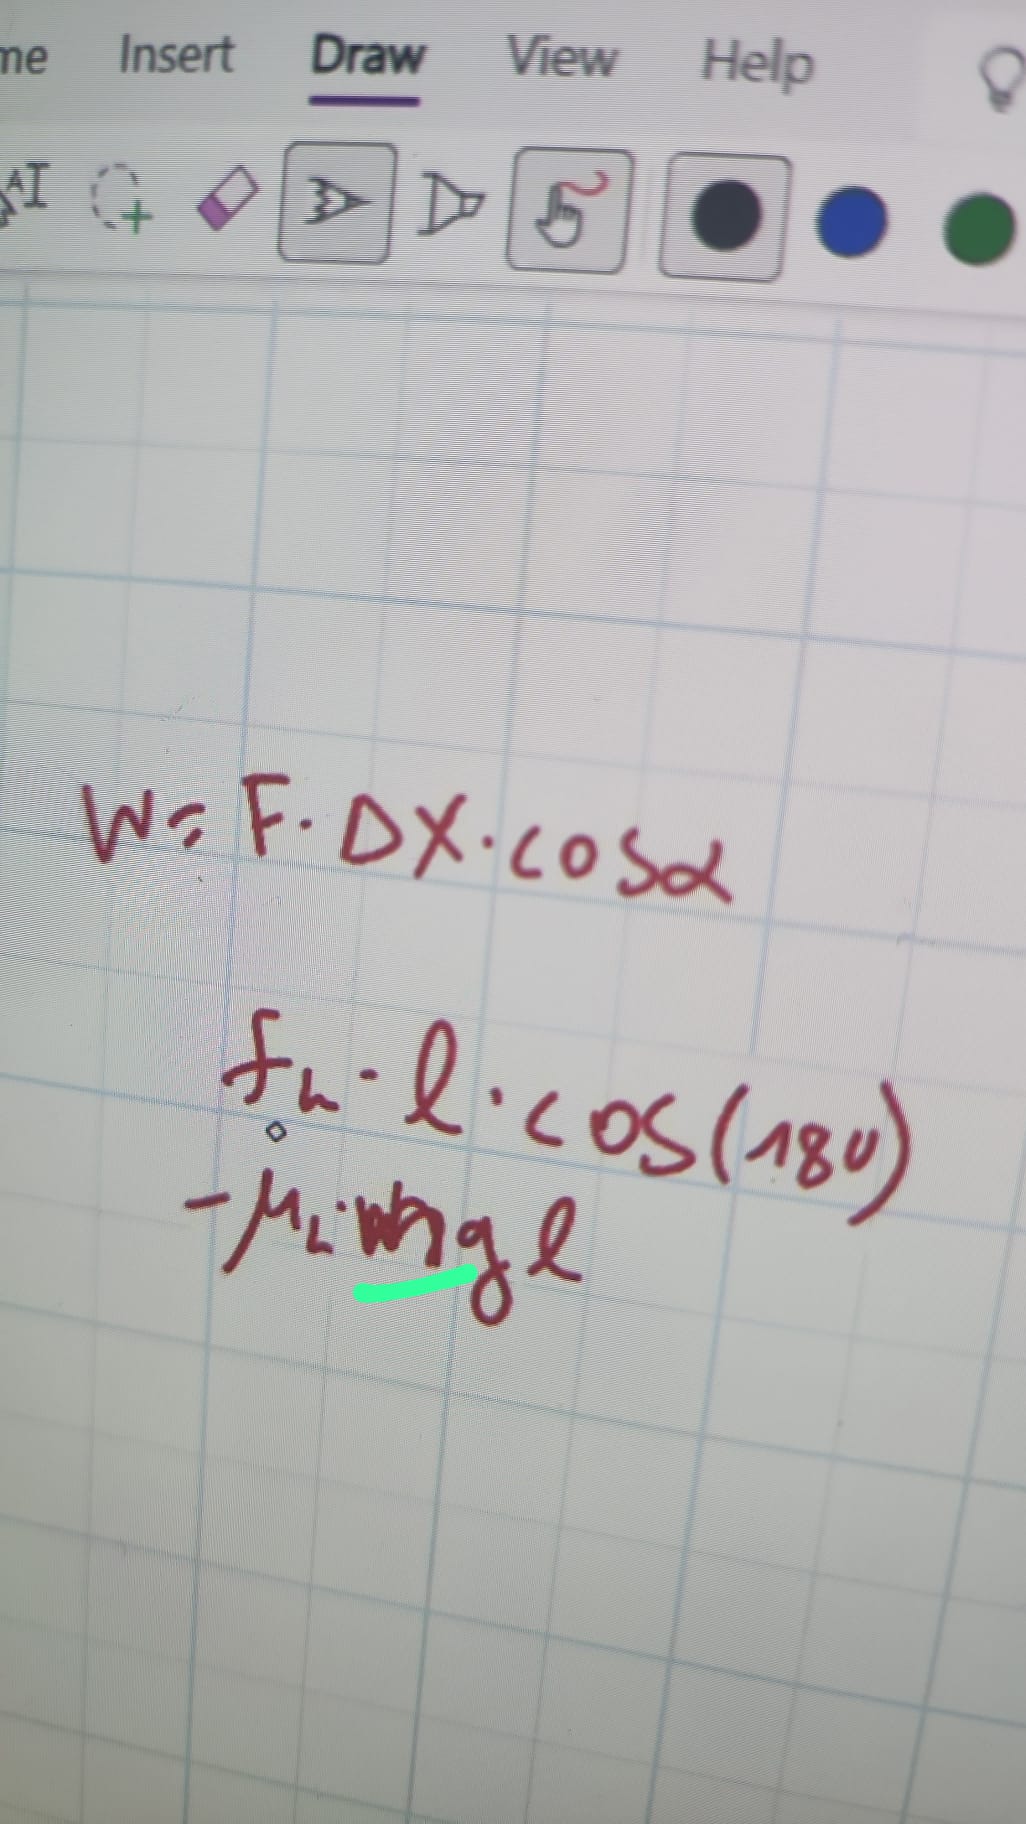 Insert Draw View Help
W= F. DX. cosα
fk · l · cos(180)
-μk·mg l